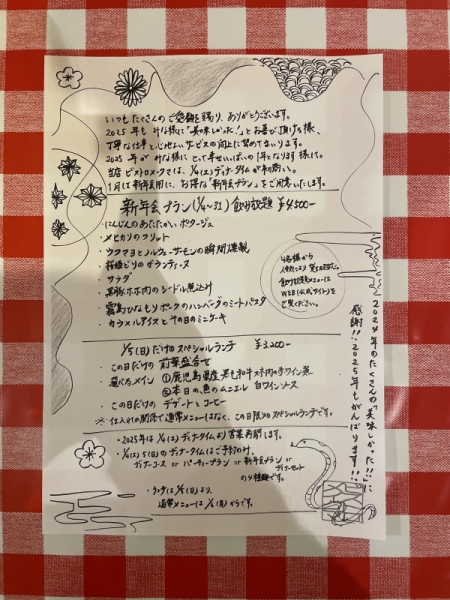 いつもたくさんのご愛顧を賜り、ありがとうございます。
2025年もみな様に「美味しかった!」とお喜び頂ける様、
丁寧な仕事と心地よいサービスの向上に努めてまいります。
2025年がみな様にとって幸せいっぱいの1年となります様に。
当店ビストロメークマは、1/4(土)ディナータイムが初商い。
1月は新年会用に、お得な「新年会プラン」をご用意いたします。
新年会プラン(1/4~31)飲み放題 ¥4,500-
・にんじんのあたたかいポタージュ
・メヒカリのフリット
・クマエビとノルウェーサーモンの瞬間燻製
・桜姫どりのガランティーヌ
・サラダ
・黒豚ホホ肉のシードル煮込み
・霧島ひなもりポークのハンバーグのミートパスタ
・カラメルアイスとその日のミニケーキ
4名様から
飲み放題メニューは
WEB(公式サイト)を
ご覧ください。
1/5(日)だけのスペシャルランチ ¥3,200-
・この日だけの前菜盛合せ
・選べるメイン ①鹿児島県産黒毛和牛スネ肉の赤ワイン煮
②本日の魚のムニエル 白ワインソース
・この日だけのデザートとコーヒー
※仕入れの関係で通常メニューはなく、この日限りのスペシャルランチです。
・2025年は1/4(土)ディナータイムより営業再開します。
・1/4(土)5(日)のディナータイムはご予約のみ、
ディナーコース or パーティープラン or 新年会プラン or ディナーセット
の4種類です。
・ランチは1/5(日)より、
通常メニューは1/6(月)からです。
2024年のたくさんの「美味しかった!!」に
感謝!!2025年もがんばります!!